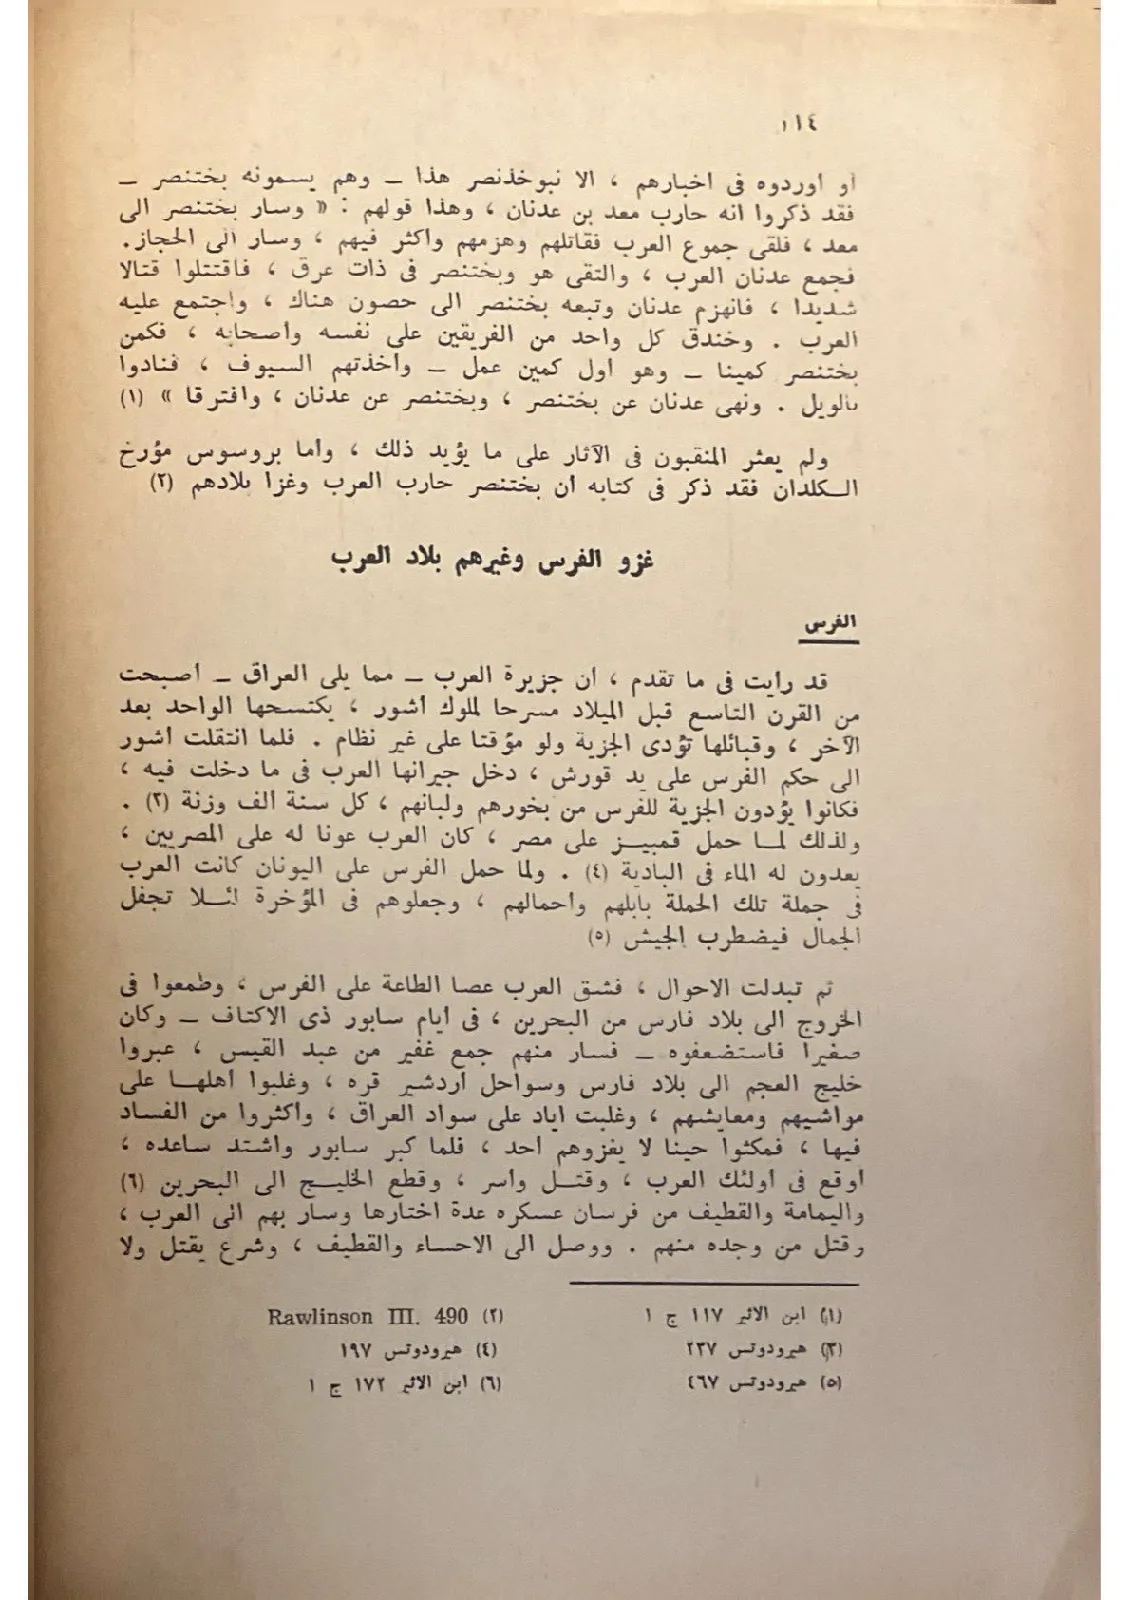 ١١٤
او اوردوه فى اخبارهم ، الا نبوخذنصر هذا – وهم يسمونه بختنصر –
فقد ذكروا انه حارب معد بن عدنان ، وهذا قولهم : « وسار بختنصر الى
معد ، فلقى جموع العرب فقاتلهم وهزمهم واكثر فيهم ، وسار الى الحجاز .
فجمع عدنان العرب ، والتقى هو وبختنصر فى ذات عرق ، فاقتتلوا قتالا
شديدا ، فانهزم عدنان وتبعه بختنصر الى حصون هناك ، واجتمع عليه
العرب . وخندق كل واحد من الفريقين على نفسه واصحابه ، فكمن
بختنصر كمينا – وهو اول كمين عمل – واخذتهم السيوف ، فنادوا
بالويل . ونهى عدنان عن بختنصر ، وبختنصر عن عدنان ، وافترقا » (١)
ولم يعثر المنقبون فى الآثار على ما يؤيد ذلك ، واما بروسوس مؤرخ
الكلدان فقد ذكر فى كتابه ان بختنصر حارب العرب وغزا بلادهم (٢)
غزو الفرس وغيرهم بلاد العرب
الفرس
قد رايت فى ما تقدم ، ان جزيرة العرب – مما يلى العراق – اصبحت
من القرن التاسع قبل الميلاد مسرحا لملوك اشور ، يكتسحها الواحد بعد
الآخر ، وقبائلها تؤدى الجزية ولو مؤقتا على غير نظام . فلما انتقلت اشور
الى حكم الفرس على يد قورش ، دخل جيرانها العرب فى ما دخلت فيه ،
فكانوا يؤدون الجزية للفرس من بخورهم ولبانهم ، كل سنة الف وزنة (٣) .
ولذلك لما حمل قمبيز على مصر ، كان العرب عونا له على المصريين ،
يعدون له الماء فى البادية (٤) . ولما حمل الفرس على اليونان كانت العرب
فى جملة تلك الحملة بابلهم واحمالهم ، وجعلوهم فى المؤخرة لئلا تجفل
الجمال فيضطرب الجيش (٥)
ثم تبدلت الاحوال ، فشق العرب عصا الطاعة على الفرس ، وطمعوا فى
الخروج الى بلاد فارس من البحرين ، فى ايام سابور ذى الاكتاف – وكان
صغيرا فاستضعفوه – فسار منهم جمع غفير من عبد القيس ، عبروا
خليج العجم الى بلاد فارس وسواحل اردشير قره ، وغلبوا اهلها على
مواشيهم ومعايشهم ، وغلبت اياد على سواد العراق ، واكثروا من الفساد
فيها ، فمكثوا حينا لا يغزوهم احد ، فلما كبر سابور واشتد ساعده ،
اوقع فى اولئك العرب ، وقتل واسر ، وقطع الخليج الى البحرين (٦)
واليمامة والقطيف من فرسان عسكره عدة اختارها وسار بهم الى العرب ،
وقتل من وجده منهم . ووصل الى الاحساء والقطيف ، وشرع يقتل ولا
(١) ابن الاثير ١١٧ ج ١ (٢) Rawlinson III. 490
(٣) هيرودوتس ٢٣٧ (٤) هيرودوتس ١٩٧
(٥) هيرودوتس ٤٦٧ (٦) ابن الاثير ١٧٢ ج ١